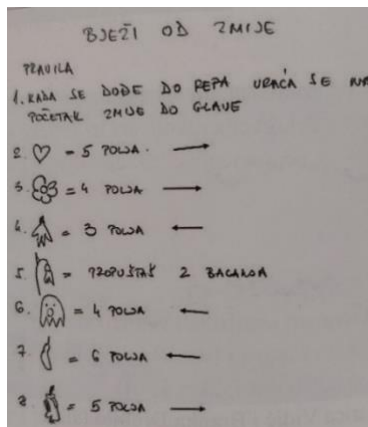 BJEŽI OD ZMIJE
PRAVILA
1. KADA SE DOĐE DO REPA VRAĆA SE NA
POČETAK ZMIJE DO GLAVE
2. = 5 POLJA.
3. = 4 POLJA
4. = 3 POLJA
5. = PROPUŠTAŠ 2 BACANJA
6. = 4 POLJA
7. = 6 POLJA
8. = 5 POLJA